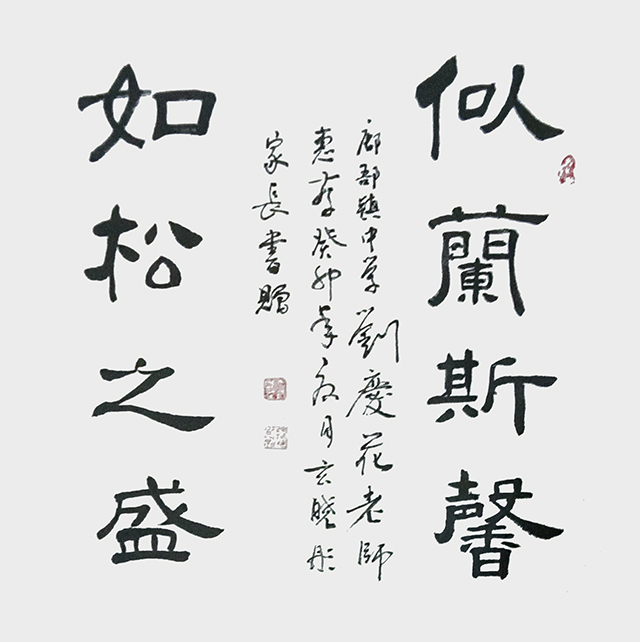 似蘭斯馨
如松之盛
鄌郚鎮中学劉慶花老師
惠存癸卯年夏月玄曉彤
家長書贈